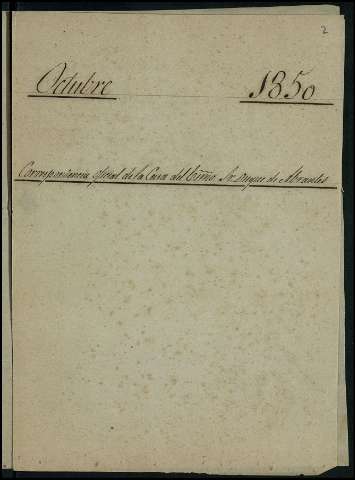 2
Octubre 1850
Correspondencia oficial de la Casa del Excmo. Sr. Duque de Abrantes